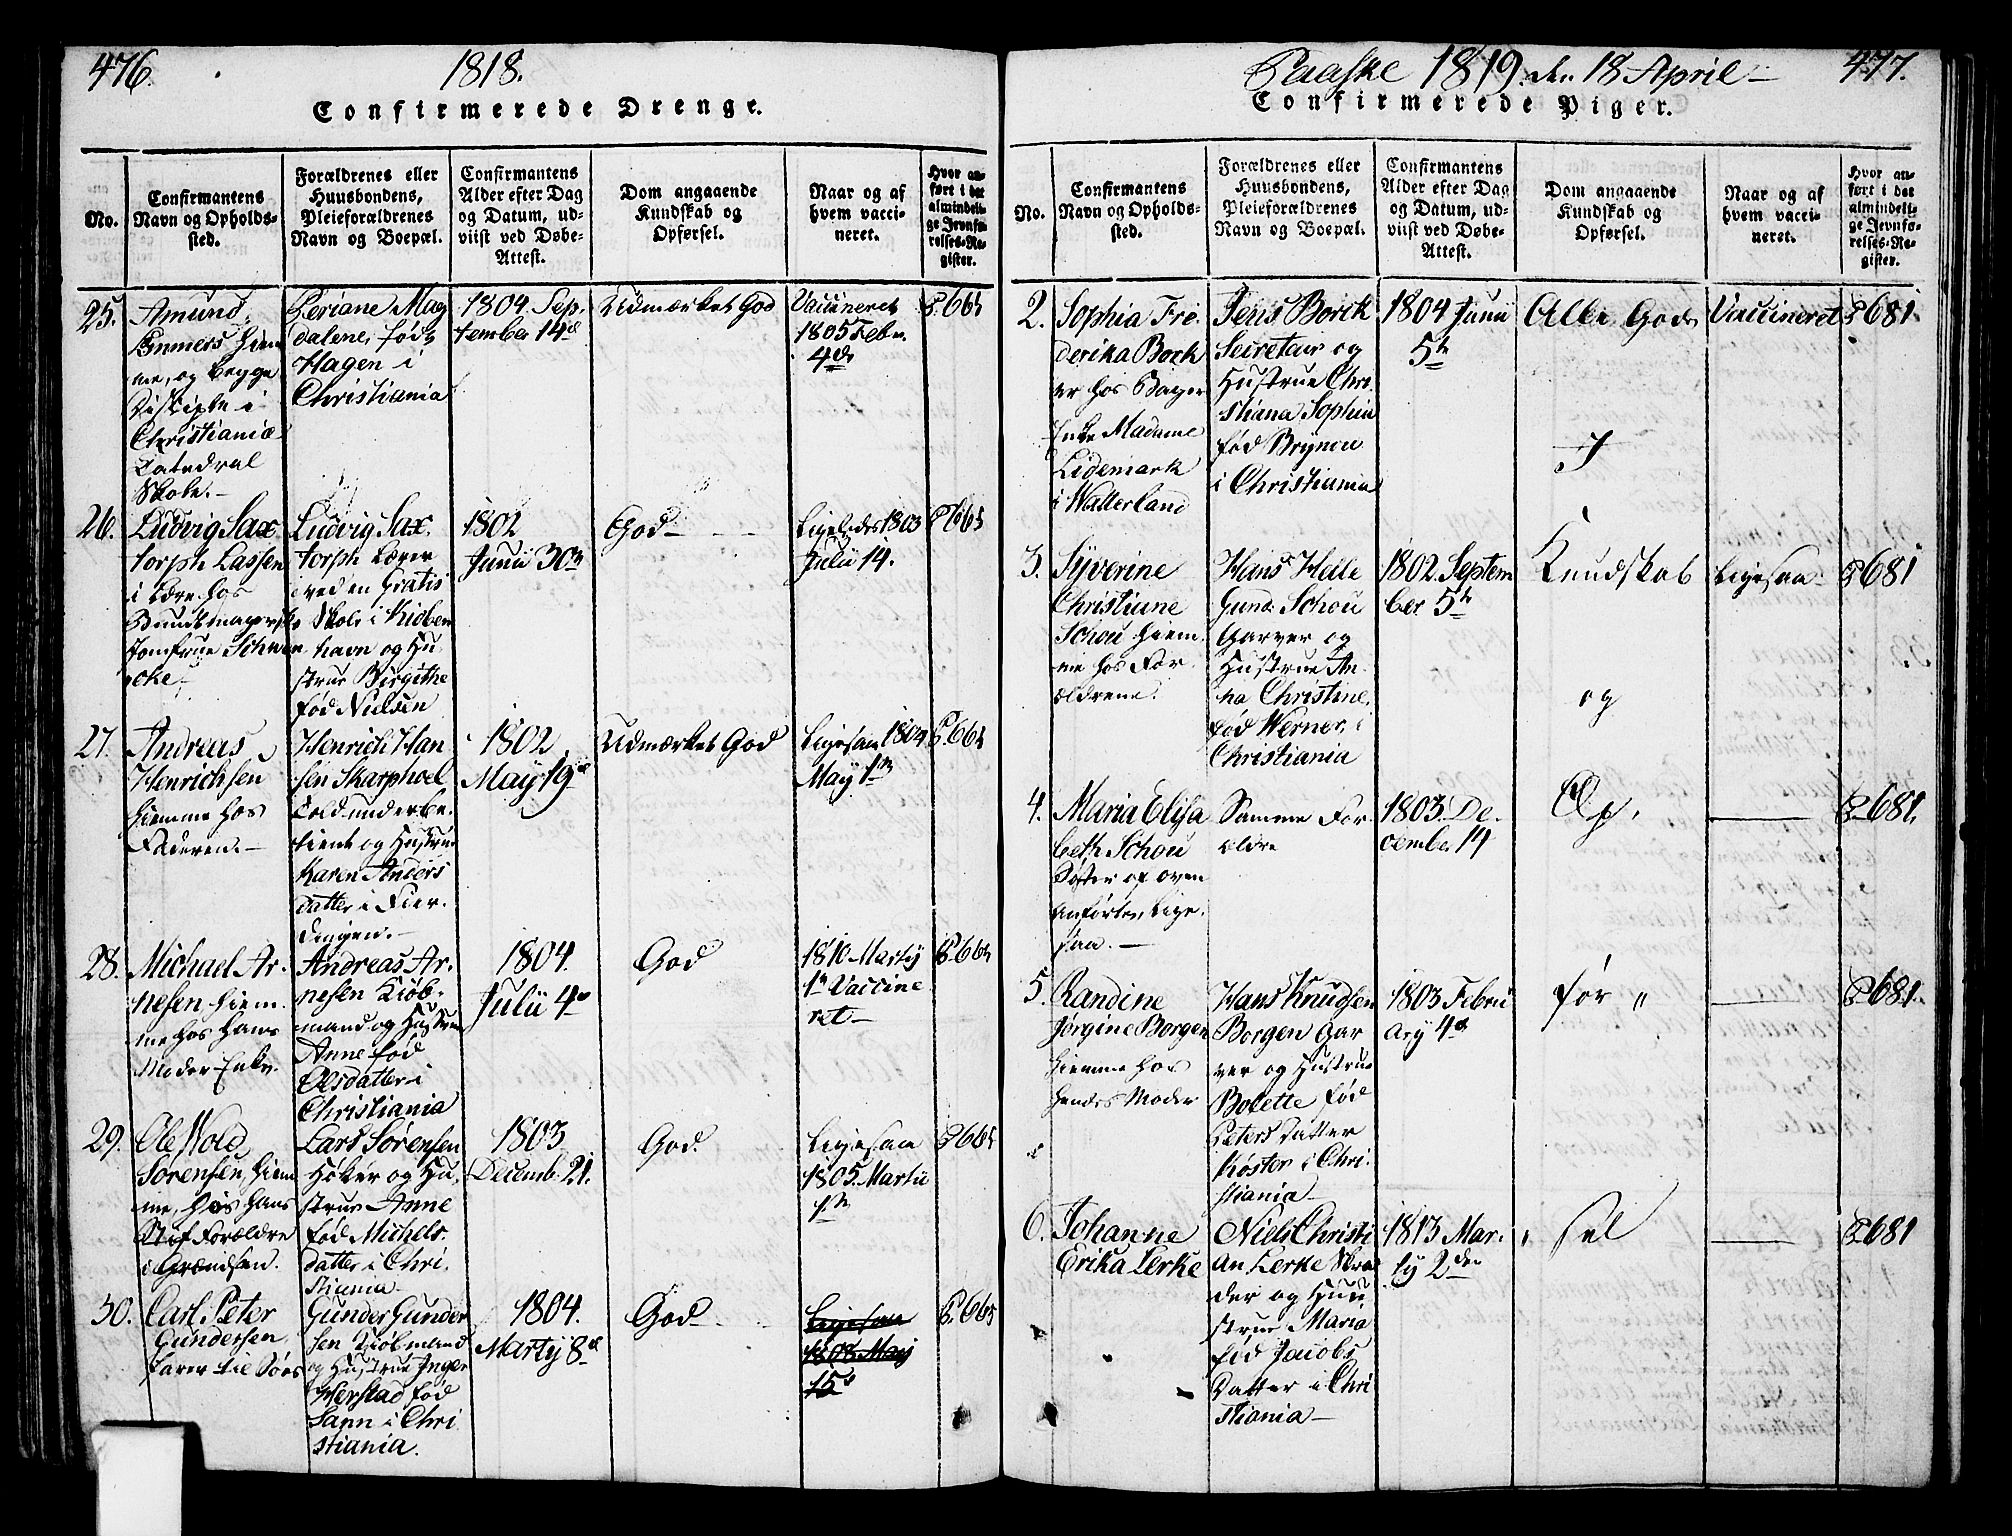 476.
1818.
Confirmerede Drenge.
No.
Confirmantens
Navn og Opholds-
sted.
Forældrenes eller
Huusbondens,
Pleieforældrenes
Navn og Boepæl.
Confirmantens
Alder efter Dag
og Datum, ud-
viist ved Døbe-
Attest.
Dom angaaende
Kundskab og
Opførsel.
Naar og af
hvem vacci-
neret.
Hvor an-
ført i det
almindeli-
ge Jevnfø-
relses-Re-
gister.
25.
Amund
hiem
me, og begge
Disciple i
Christianiæ
Catedral
Skole.
Periane Mag
dalene, fød
Hagen i
Christiania
1804. Sep-
tember 14d
Udmærket God
Vaccineret
1805 Febr.
4de
P. 665
26.
Ludvig Sax
torph Lassen
i Lære hos
Bundtmager
Jomfrue Schwen
cke
Ludvig Sax
torph Lærer
ved en Gratis
Skole i Kioben
havn og Hu
strue Birgithe
fød Nielsen
1802
Junii 30
God
Ligeledes 1803
Julii 14.
P 665
27.
Andreas
Henrichsen
hiemme hos
Faderen.
Henrich Han
sen Skarphoel
Told underbe-
tient og Hustrue
Karen Anders
datter i Fier-
dingen.
1802
May 19
Udmærket God
Ligesaa 1804
May 1
P. 665
28.
Michael Ar-
nesen hiem-
me hos hans
Moder Enke.
Andreas Ar-
nesen Kiøb-
mand og Hustrue
Anne fød
Olsdatter i
Christiania
1804.
Julii 4
God
1810 Martij
1 Vaccine
ret
P. 665
29.
Ole Wold
Sørensen, hiem
me, hos hans
Stif Forældre
i Grændsen.
Lars Sørensen
Høker og Hu
strue Anne
fød Michels
datter i Chri
stiania
1803
Decemb. 21.
God.
Ligesaa
1805. Martii
1
P 665
30.
Carl Peter
Gundersen
farer til Søes
Gunder Gunder
sen Kiøbmand
og Hustrue Inger
Herstad fød
Sann i Chri
stiania.
1804.
Martij 8d
God
Ligesaa
1808 Maij
15
P. 665
Paaske 1819. den 18 April
477.
Confirmerede Piger.
No.
Confirmantens
Navn og Opholds-
sted.
Forældrenes eller
Huusbondens,
Pleieforældrenes
Navn og Boepæl.
Confirmantens
Alder efter Dag
og Datum, ud-
viist ved Døbe-
Attest.
Dom angaaende
Kundskab og
Opførsel.
Naar og af
hvem vacci-
neret.
Hvor an-
ført i det
almindeli-
ge Jevnfø-
relses-Re-
gister.
2.
Sophia Fre
derika Bock
er hos Bager
Enke Madame
Lidemark
i Watterland
Jens Borck
Secretair og
Hustrue Chri
stiana Sophia
fød Brynou
i Christiania
1804 Junii
5te
Alle Gode
I
Vaccineret
P 681
3.
Syverine
Christiane
Schou hiem
me hos For
ældrene.
Hans Helle
Gund Schou
Garver og
Hustrue An
na Christine
fød Werner i
Christiania
1802. Septem
ber 5te
Kundskab
og
Ligesaa
P 681
4.
Maria Elisa
beth Schou
Søster af oven
anførte, lige
saa.
Samme For
ældre
1803. De-
cember 14
Op.
P 681.
5.
Randine
Jørgine Borgen
hiemme hos
hendes Moder
Hans Knudsen
Borgen Gar
ver og Hustrue
Bolette fød
Peters Datter
Köster i Chri-
stiania
1803 Febru
ary 4d
før "
P 681.
6.
Johanne
Erika Lerke
Niels Christi
an Lerke Skræ
der og Huu
strue Maria
fød Jacobs
Datter i Chri
stiania
1813 Mar-
tij 2den
sel
P 681